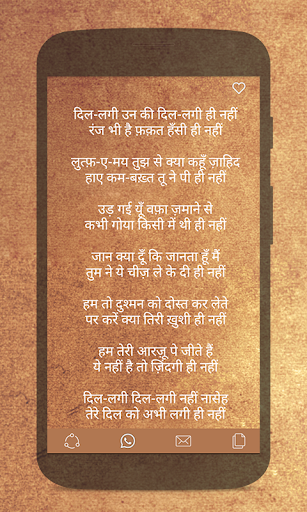 दिल-लगी उन की दिल-लगी ही नहीं
रंज भी है फ़क़त हँसी ही नहीं
लुत्फ़-ए-मय तुझ से क्या कहूँ ज़ाहिद
हाए कम-बख़्त तू ने पी ही नहीं
उड़ गई यूँ वफ़ा ज़माने से
कभी गोया किसी में थी ही नहीं
जान क्या दूँ कि जानता हूँ मैं
तुम ने ये चीज़ ले के दी ही नहीं
हम तो दुश्मन को दोस्त कर लेते
पर करें क्या तिरी ख़ुशी ही नहीं
हम तेरी आरज़ू पे जीते हैं
ये नहीं है तो ज़िंदगी ही नहीं
दिल-लगी दिल-लगी नहीं नासेह
तेरे दिल को अभी लगी ही नहीं